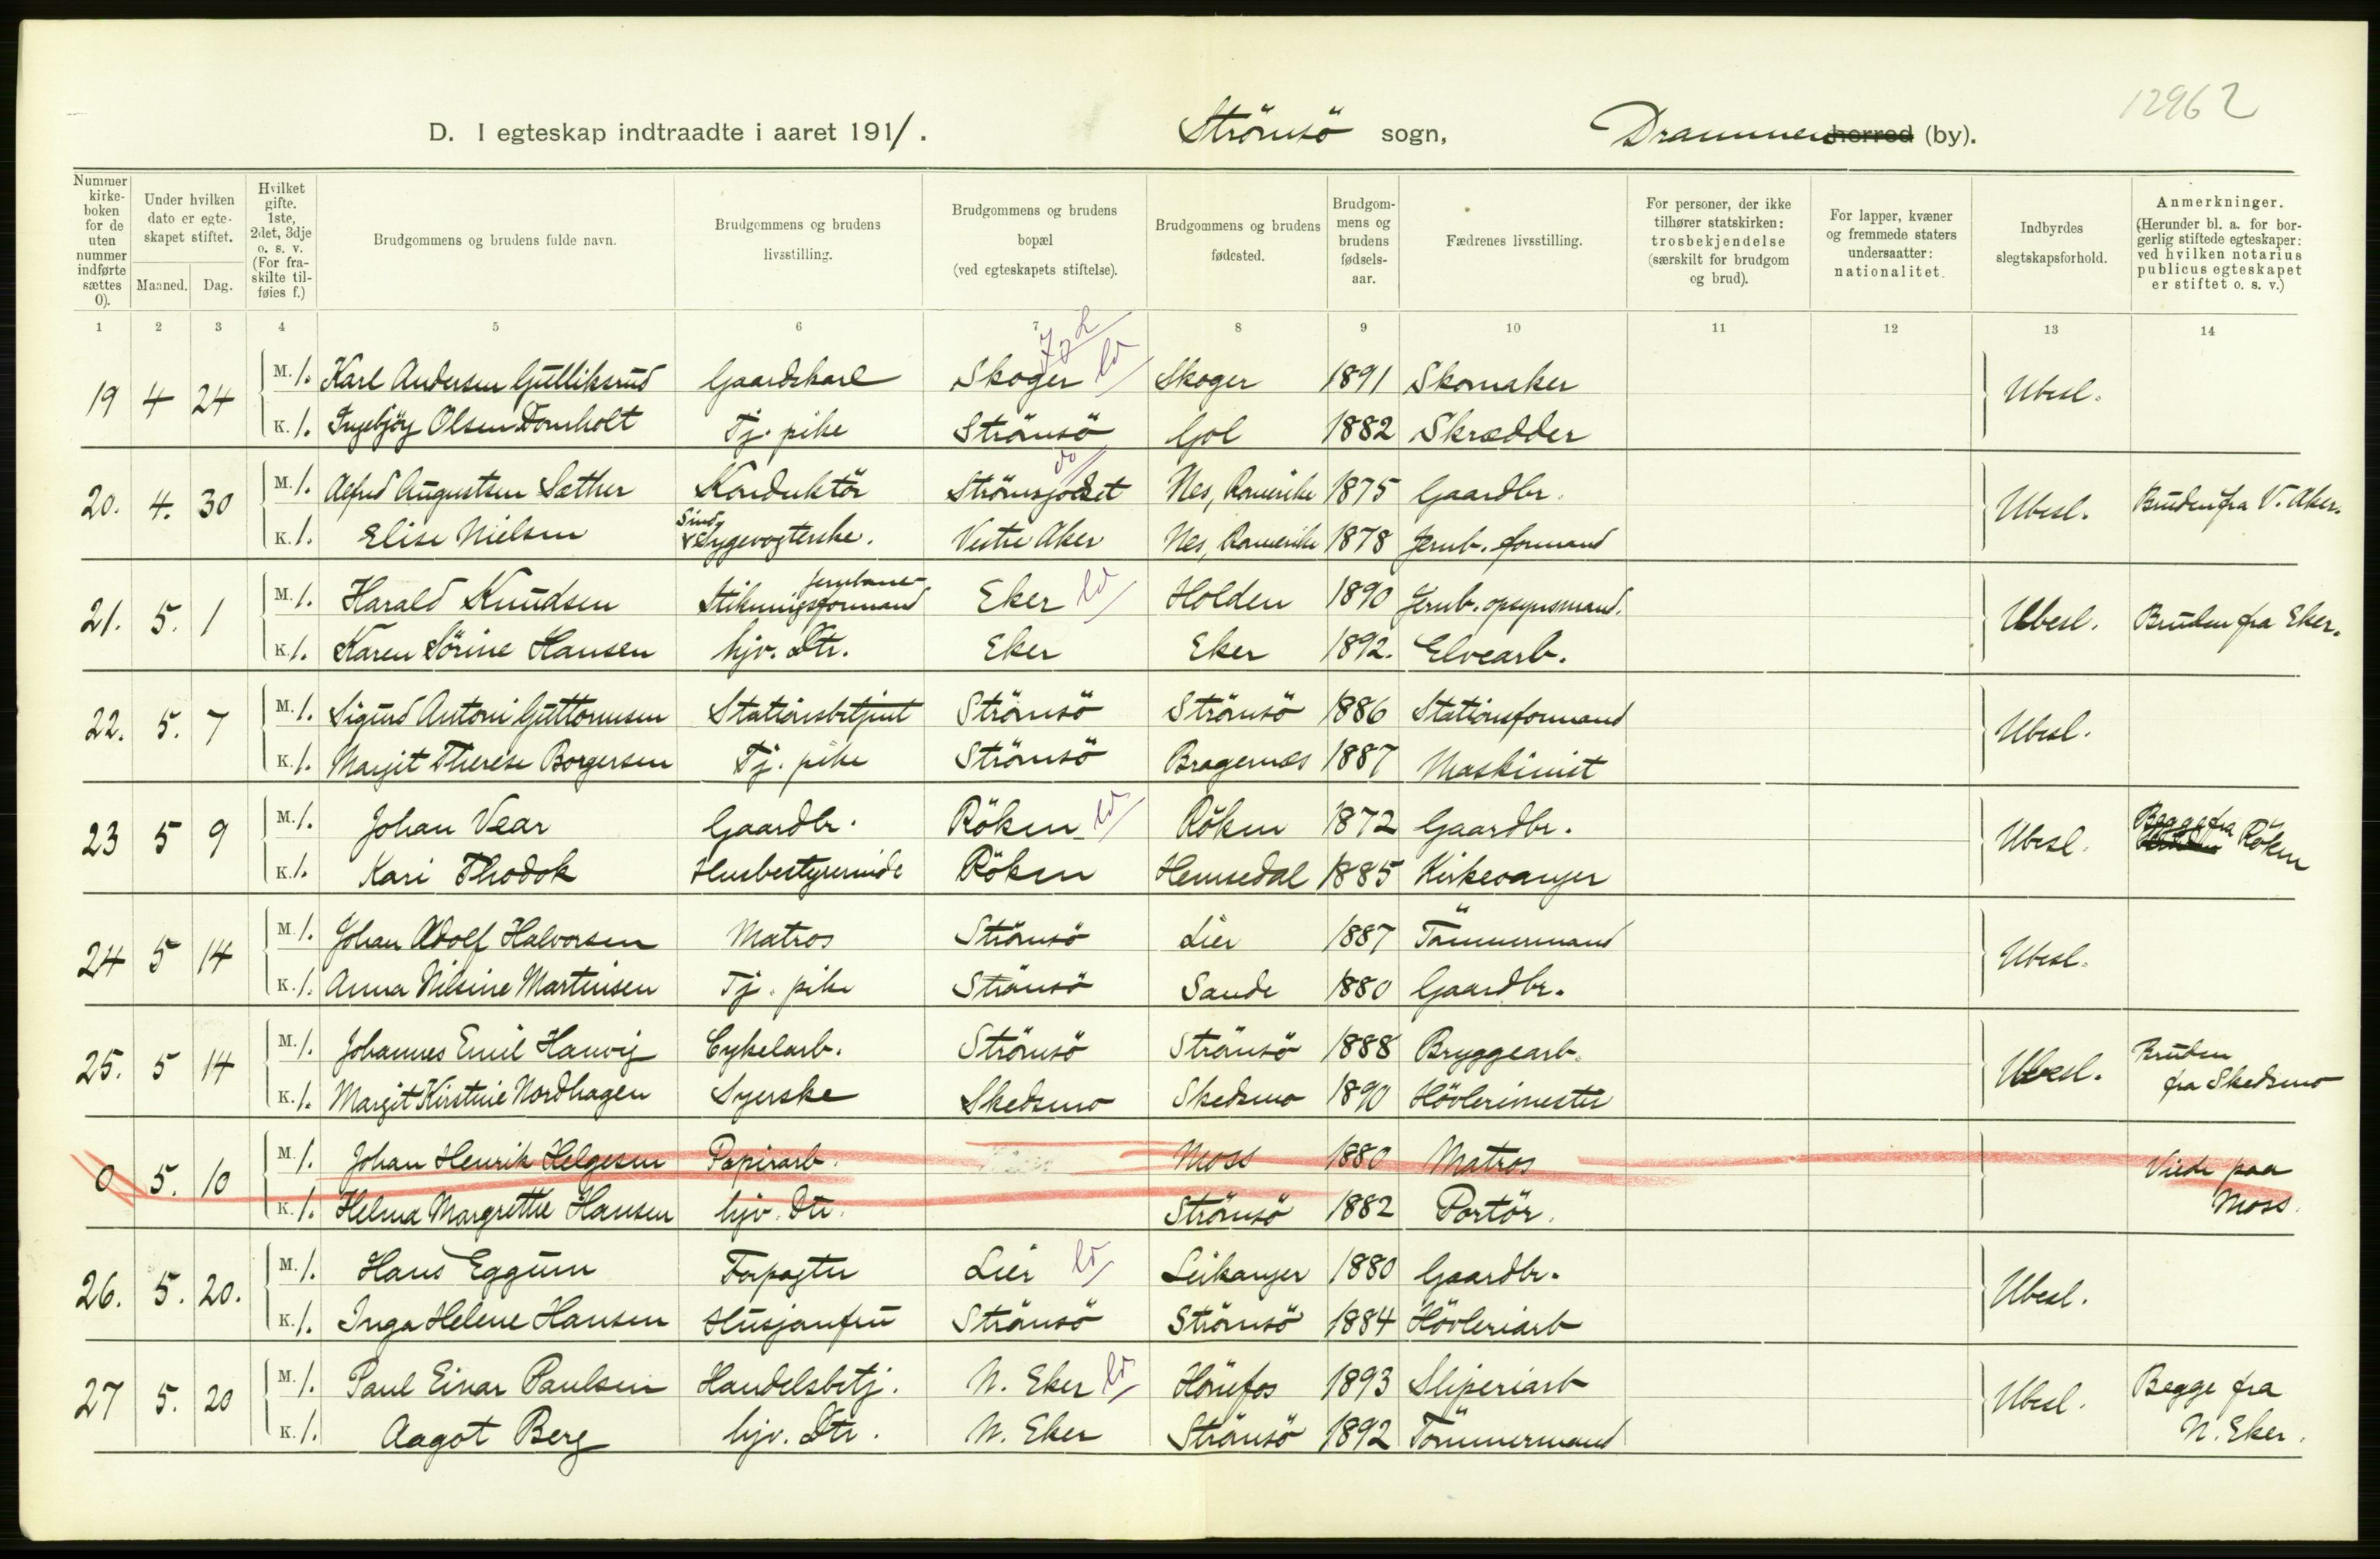 12962
D. I egteskap indtraadte i aaret 1911. Strömsö sogn, Drammen herred (by).
Nummer kirke-boken for de uten nummer indførte sættes 0).
Under hvilken dato er egte-skapet stiftet.
Maaned. Dag.
Hvilket gifte. 1ste, 2det, 3dje o. s. v. (For fra-skilte til-føies f.)
Brudgommens og brudens fulde navn.
Brudgommens og brudens livsstilling.
Brudgommens og brudens bopæl (ved egteskapets stiftelse).
Brudgommens og brudens fødested.
Brudgom-mens og brudens fødsels-aar.
Fædrenes livsstilling.
For personer, der ikke tilhører statskirken: trosbekjendelse (særskilt for brudgom og brud).
For lapper, kvæner og fremmede staters undersaatter: nationalitet.
Indbyrdes slegtskapsforhold.
Anmerkninger. (Herunder bl. a. for bor-gerlig stiftede egteskaper: ved hvilken notarius publicus egteskapet er stiftet o. s. v.)
1 2 3 4 5 6 7 8 9 10 11 12 13 14
19 4 24 M. 1. Karl Andersen Gulliksrud Gaardskarl Skoger Skoger 1891 Skomaker Ubesl.
K. 1. Ingebjög Olsen Domholt Tj. pike Strömsö Gol 1882 Skrædder
20. 4. 30 M. 1. Alfred Augustsen Sæther Konduktör Strömsgodset Nes, Romerike 1875 Gaardbr. Ubesl. Bruden fra V. Aker.
K. 1. Elise Nielsen Sindssygevogterske. Vestre Aker Nes, Romerike 1878 Jernb. formand
21. 5. 1 M. 1. Harald Knudsen jernbane Stikningsformand Eker Holden 1890 Jernb. opsynsmand. Ubesl. Bruden fra Eker.
K. 1. Karen Sörine Hansen hjv. Dtr. Eker Eker 1892. Elvearb.
22. 5. 7 M. 1. Sigurd Antoni Guttormsen Stationsbetjent Strömsö Strömsö 1886 Stationsformand Ubesl.
K. 1. Margit Therese Borgersen Tj. pike Strömsö Bragernæs 1887 Maskinist
23 5 9 M. 1. Johan Vear Gaardbr. Röken Röken 1872 Gaardbr. Ubesl. Begge fra Röken
K. 1. Kari Thodok Husbestyrerinde Röken Hemsedal 1885 Kirkesanger
24 5 14 M. 1. Johan Adolf Halvorsen Matros Strömsö Lier 1887 Tömmermand Ubesl.
K. 1. Anna Nilsine Martinsen Tj. pike Strömsö Sande 1880 Gaardbr.
25. 5 14 M. 1. Johannes Emil Hanvig Cykelarb. Strömsö Strömsö 1888 Bryggearb. Ubesl. Bruden fra Skedsmo
K. 1. Margit Kirstine Nordhagen Syerske Skedsmo Skedsmo 1890 Hövlerimester
0 5. 10 M. 1. Johan Henrik Helgesen Papirarb. Moss 1880 Matros Viede paa Moss.
K. 1. Helma Margrethe Hansen hjv. Dtr. Strömsö 1882 Portör.
26. 5. 20. M. 1. Hans Eggum Forpagter Lier Leikanger 1880 Gaardbr. Ubesl.
K. 1. Inga Helene Hansen Husjomfru Strömsö Strömsö 1884 Hövleriarb
27 5. 20 M. 1. Paul Einar Paulsen Handelsbetj. N. Eker Hönefos 1893 Sliperiarb Ubesl. Begge fra N. Eker.
K. 1. Aagot Berg hjv. Dtr. N. Eker Strömsö 1892 Tömmermand